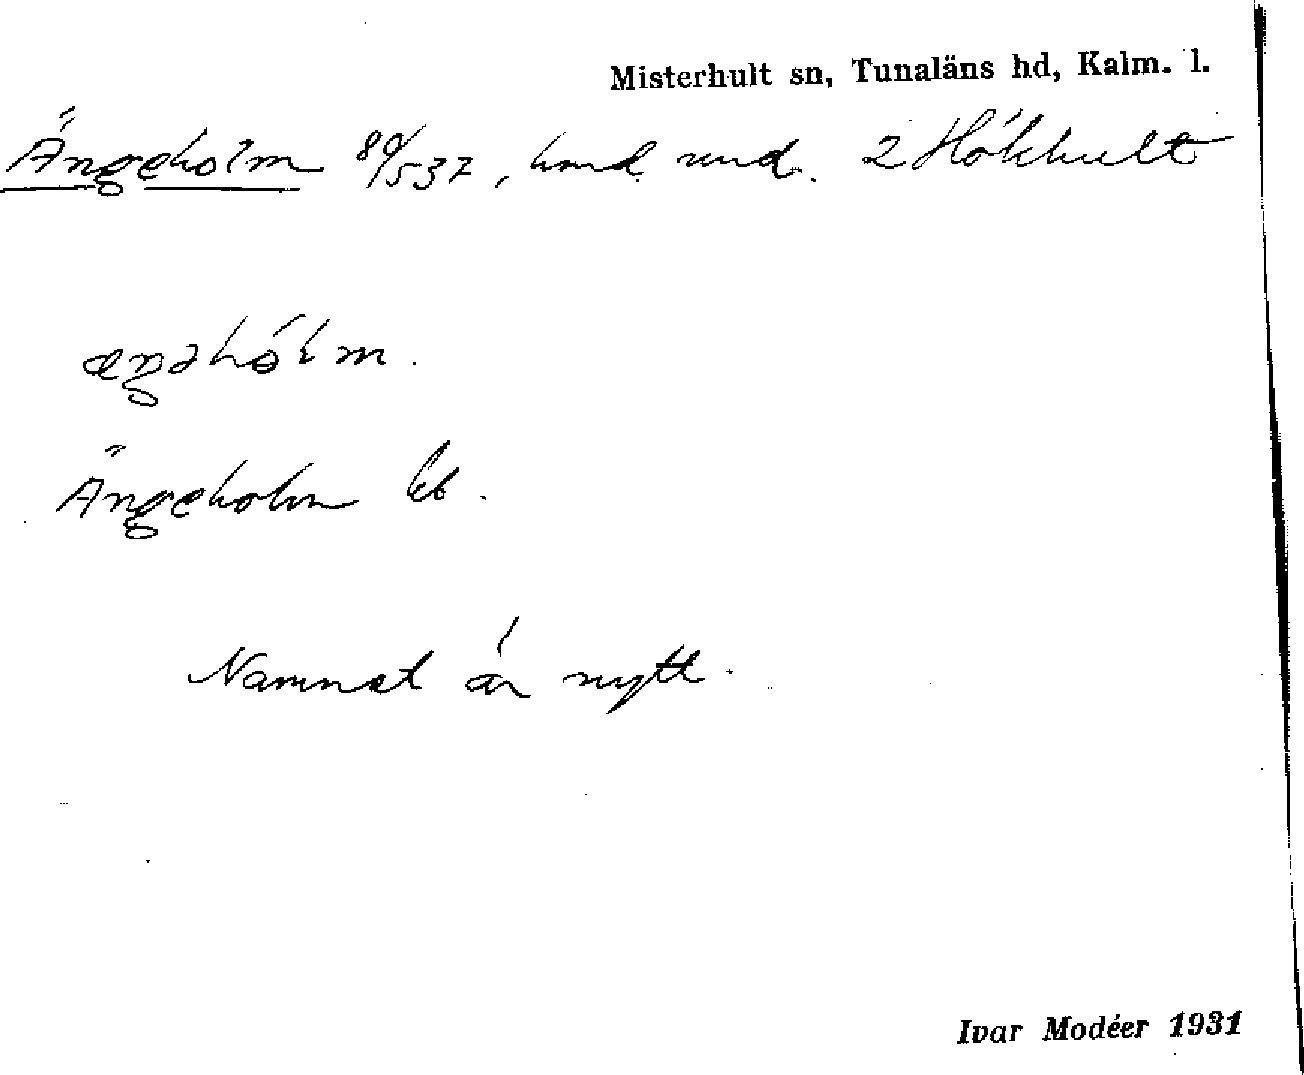 Misterhult sn, Tunaläns hd, Kalm. l.
Ängeholm 80/537, hmd. und. 2 Hökhult
æŋəhólm.
Ängeholm kb.
Namnet är nytt.
Ivar Modéer 1931